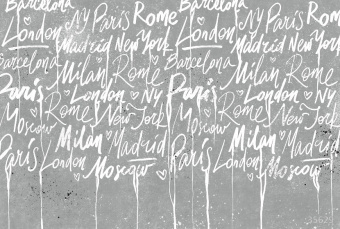 Barcelona Barcelona
Ny Paris Rome Ny Paris Rome
London London
Madrid New York Madrid New York
Barcelona Barcelona
Milan Rome Milan Rome
Paris London Ny Paris London Ny
Rome New York Rome New York
Moscow Moscow
Milan Madrid Milan Madrid
Paris London Paris London
Moscow Moscow